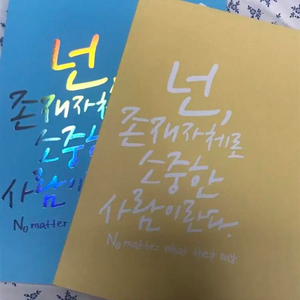 넌,
존재자체로
소중한
사람이
No matter
넌,
존재자체로
소중한
사람이란다.
No matter what they said